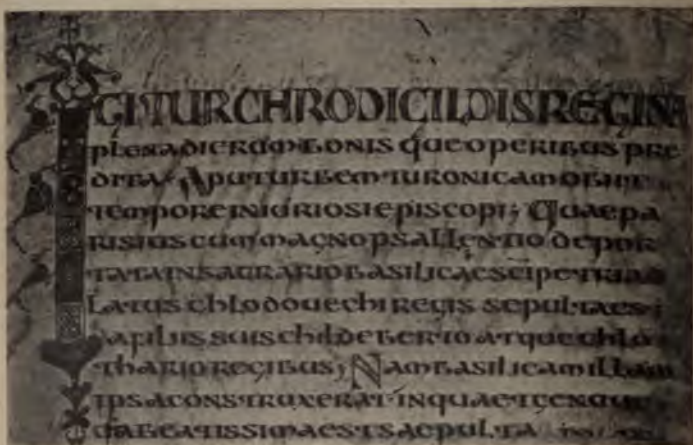 IGITUR CHRODICILDIS REGINA
plena dierum bonis que operibus pre
dita Aput urbem turonicam obiit
tempore iniuriosi episcopi; Quae pa
risius cum magno psallentio depor
tata in sacrario basilicae sci petri ad
latus chlodouechi regis sepulta est
a filiis suis childeberto atque chlo
thario regibus; Nam basilicam illam
ipsa construxerat in qua et
beatissima est saepulta